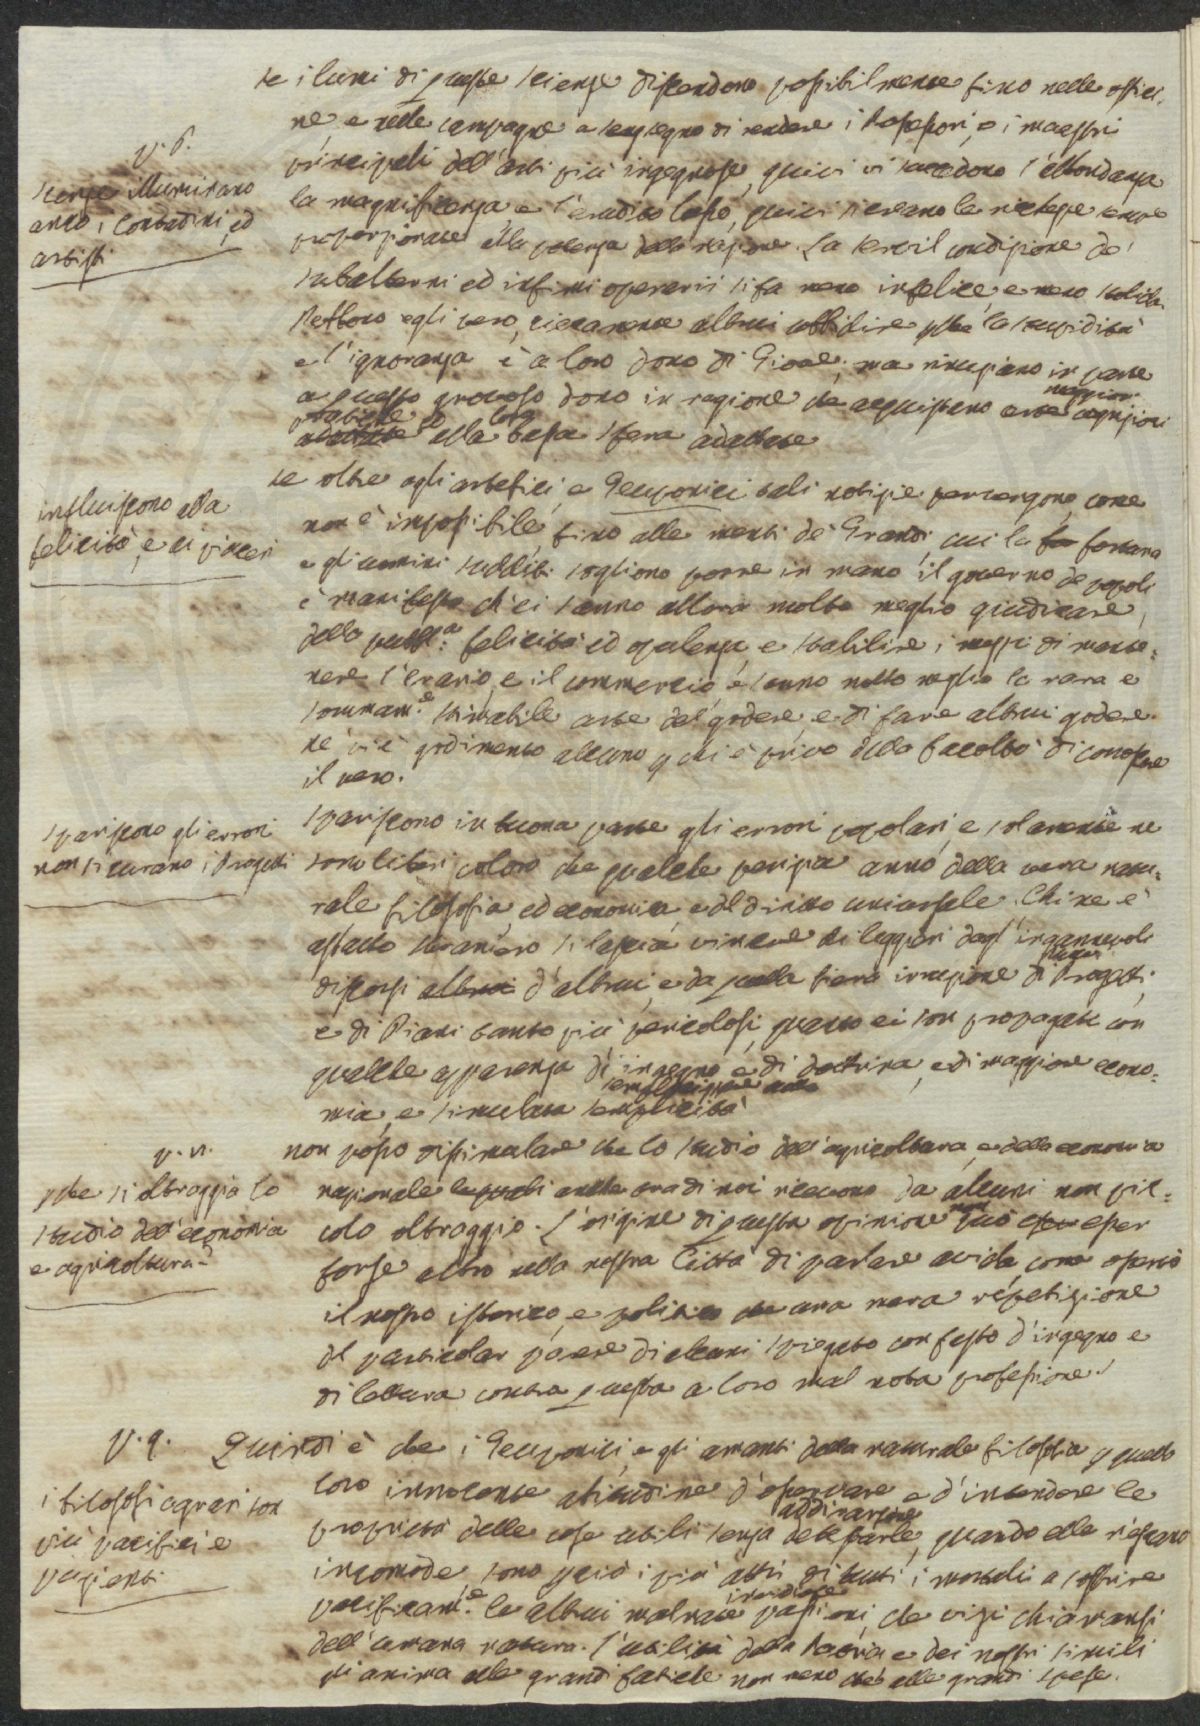 se i lumi di queste scienze discendono possibilmente fino nelle offici-
ne, e nelle campagne a segno di rendere i Possessori, o i maestri
principali dell'arti più ingegnose, quivi vi succedono l'abbondanza
la magnificenza, e l'erudito lusso, quivi si creano le ricchezze sempre
proporzionate alla potenza della nazione. La servil condizione de'
subalterni ed infimi operarii si fa meno infelice, e meno stolida.
Debbono egli vero, ciecamente altrui ubbidire pche la stupidità
e l'ignoranza è a loro dono di Giove; ma rinunziano in parte
a questo gravoso dono in ragione che acquistano maggiori cognizioni
alla loro bassa sfera adattate
v. p.
scienze illuminano
anco i contadini, ed
artisti
se oltre agli artefici, e Geuponici tali notizie pervengono, come
non è impossibile, fino alle menti de' Grandi cui la fortuna
e gli uomini sudditi sogliono porre in mano il governo de popoli
è manifesto ch'ei sanno allora molto meglio giudicare,
della pubbl.a felicità ed opulenza, e stabilire i mezzi di mante-
nere l'erario, e il commercio e sanno molto meglio la rara e
sommam.e stimabile arte del godere, e di fare altrui godere.
ne vi è godimento alcuno p chi è privo della facoltà di conoscere
il vero.
influiscono alla
felicità, e ai piaceri
Spariscono in buona parte gli errori popolari, e solamente ne
sono liberi coloro che qualche perizia anno della vera natu-
rale filosofia, ed economia, e del diritto universale. Chi ne è
affatto straniero si lascia vincere di leggieri dagl'ingannevoli
discorsi d'altrui, e da quella fiera irruzione di Progetti,
e di Piani tanto più pericolosi, quanto ei son propagati con
qualche apparenza di ingegno e di dottrina, e di maggiore econo-
mia, e simulata semplicità
spariscono gli errori
non si curano i Progetti
non posso dissimulare che lo studio dell'agricoltura, e della economia
nazionale anche ora di noi ricevono da alcuni non pic-
colo oltraggio. L'origine di questa opinione non può esser
forse altro nella nostra Città di parlare avida come osservò
il nostro istorico, e politico che una mera repetizione
del particolar parere di alcuni spiegato con fasto d'ingegno e
di lettura contra questa a loro mal nota professione.
v. n.
pche si oltraggia lo
studio dell'economia
e agricoltura?
v. q. Quindi è che i Geuponici, e gli amanti della naturale filosofia p quella
loro innocente abitudine d'osservare e d'intendere le
proprietà delle cose utili senza adirarsene, quando elle riescano
incomode, sono perciò i più atti di tutti i mortali a soffrire
pacificam.e le altrui malnate invidiose passioni, che vizi chiamansi
dell'umana natura. L'utilità della Patria e dei nostri simili
gli anima alle grandi fatiche non meno che alle grandi spese.
i filosofi agrari son
più pacifici e
pazienti